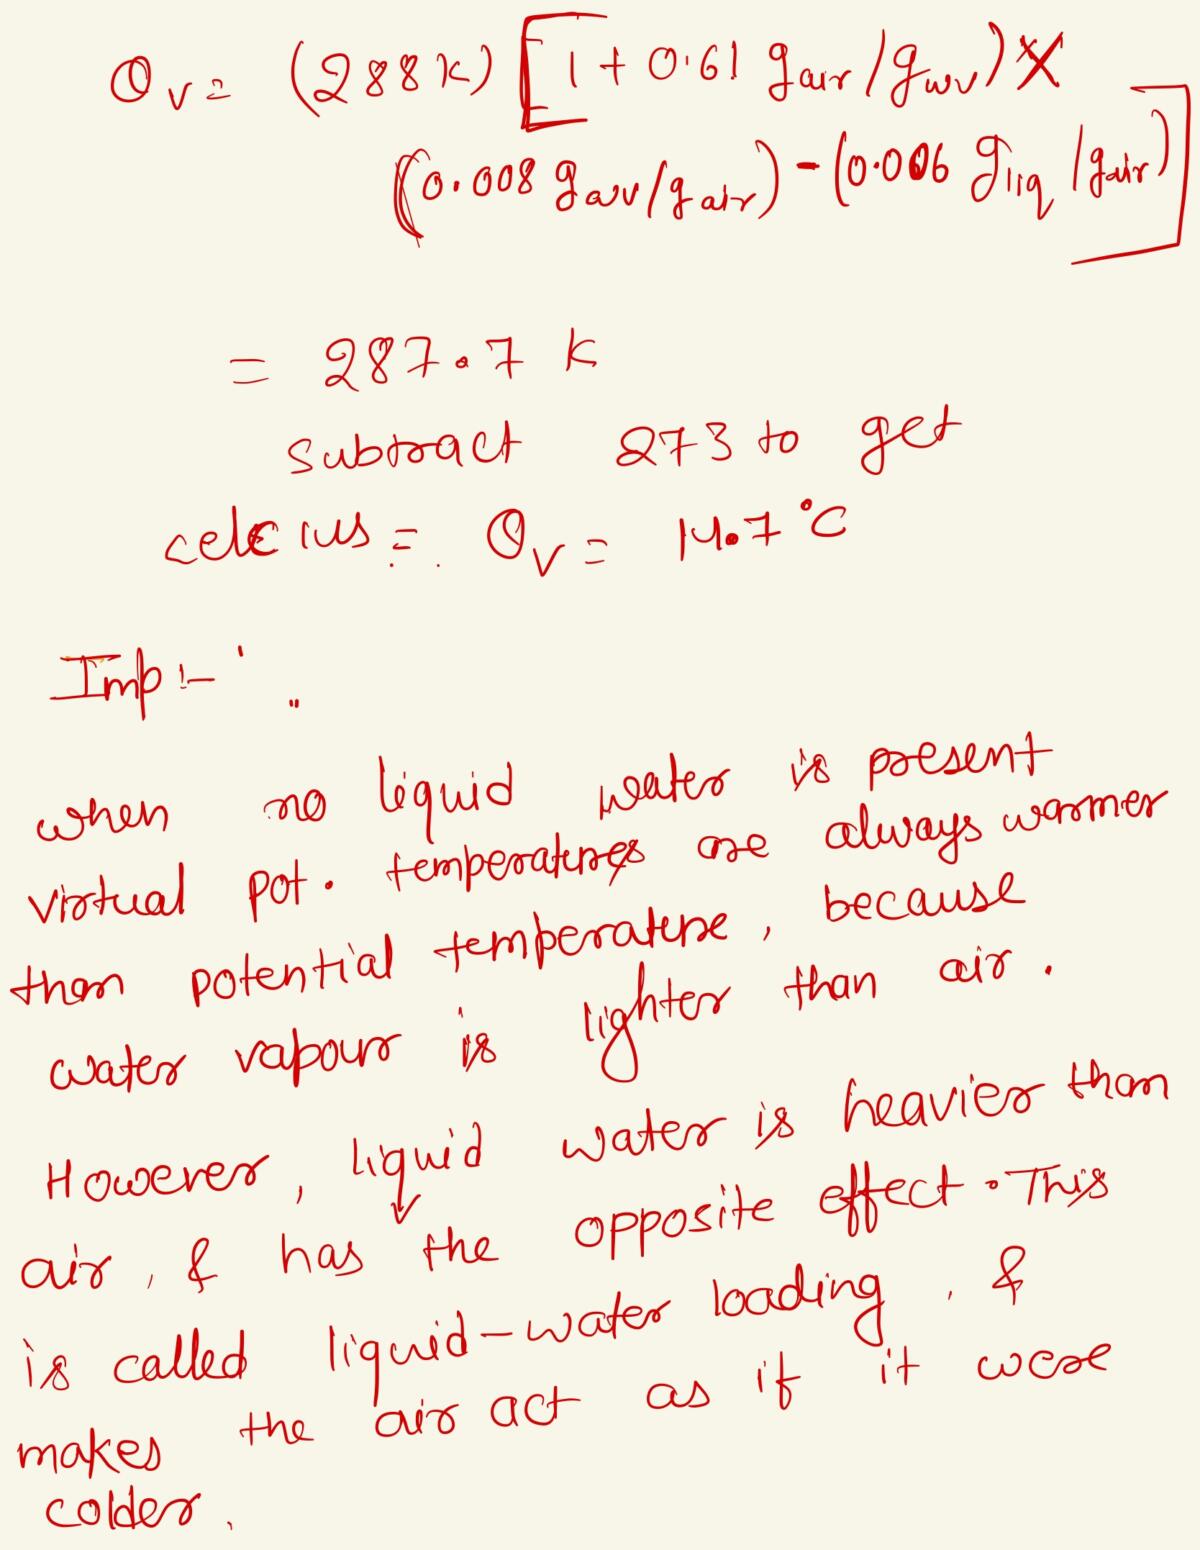 θv = (288 K) [1 + 0.61 gair/gwv) ×
((0.008 gwv/gair) - (0.006 gliq/gair)]
= 287.7 K
subtract 273 to get
celcius = θv = 14.7 °C
Imp :-
when no liquid water is present
virtual pot. temperatures are always warmer
than potential temperature, because
water vapour is lighter than air.
However, liquid water is heavier than
air, & has the opposite effect. This
is called liquid-water loading, &
makes the air act as if it were
colder.